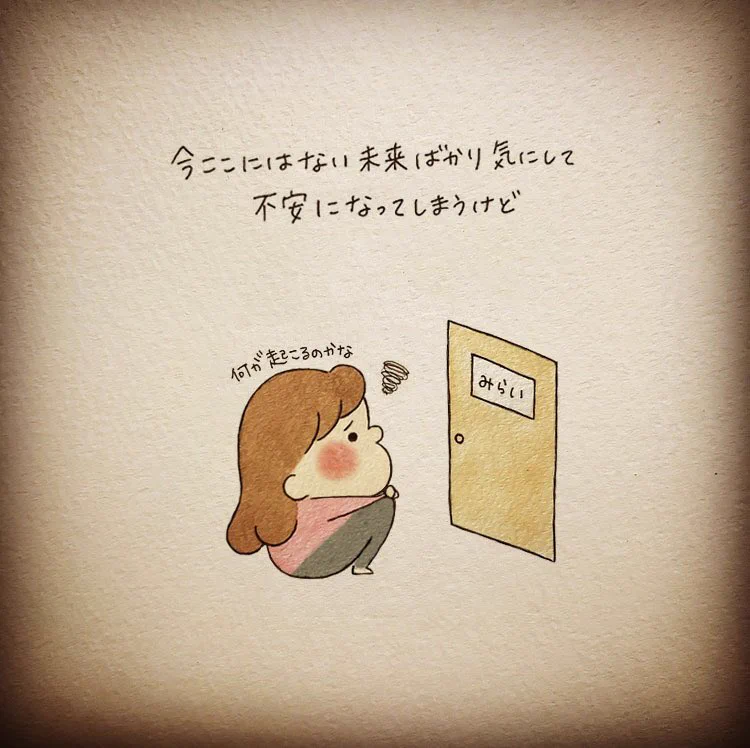 今ここにはない未来ばかり気にして
不安になってしまうけど
何が起こるのかな
みらい